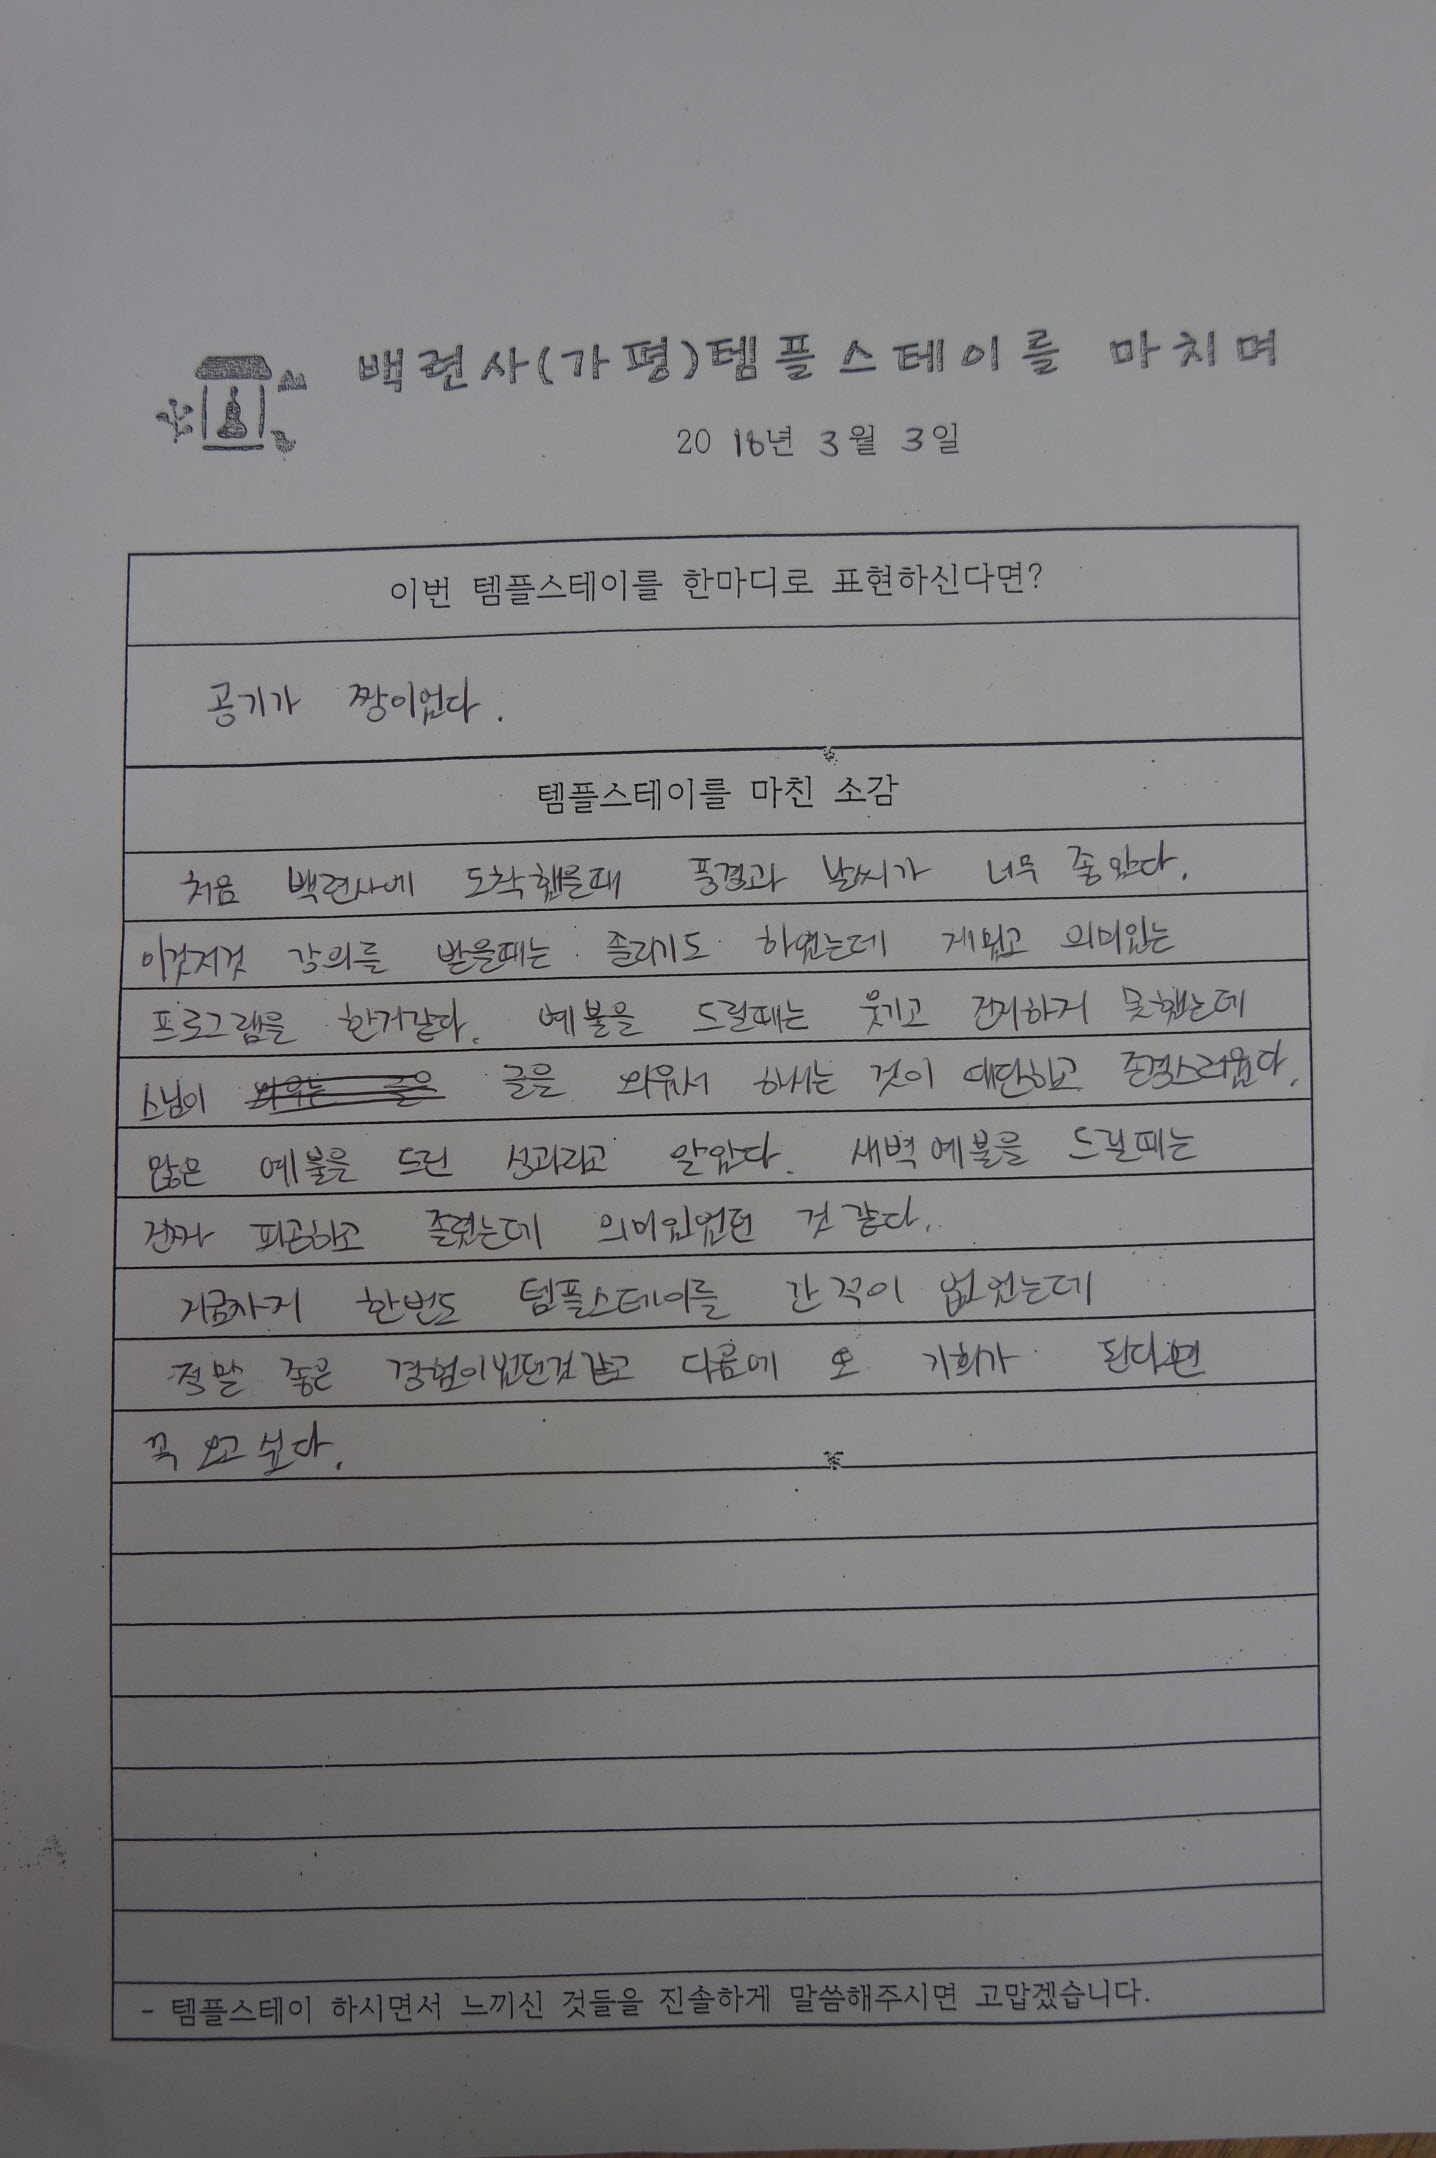 백련사(가평)템플스테이를 마치며
2016년 3월 3일
이번 템플스테이를 한마디로 표현하신다면?
공기가 짱이었다.
템플스테이를 마친 소감
처음 백련사에 도착했을때 풍경과 날씨가 너무 좋았다.
이것저것 강의를 받을때는 졸리기도 하였는데 재밌고 의미있는
프로그램을 한거같다. 예불을 드릴때는 웃기고 진지하게 못했는데
스님이 글을 외워서 하시는 것이 대단하고 존경스러웠다.
많은 예불을 드린 성과라고 알았다. 새벽예불을 드릴때는
진짜 피곤하고 졸렸는데 의미있었던 것 같다.
지금까지 한번도 템플스테이를 간 적이 없었는데
정말 좋은 경험이었던것 같고 다음에 또 기회가 된다면
꼭 오고 싶다.
- 템플스테이 하시면서 느끼신 것들을 진솔하게 말씀해주시면 고맙겠습니다.